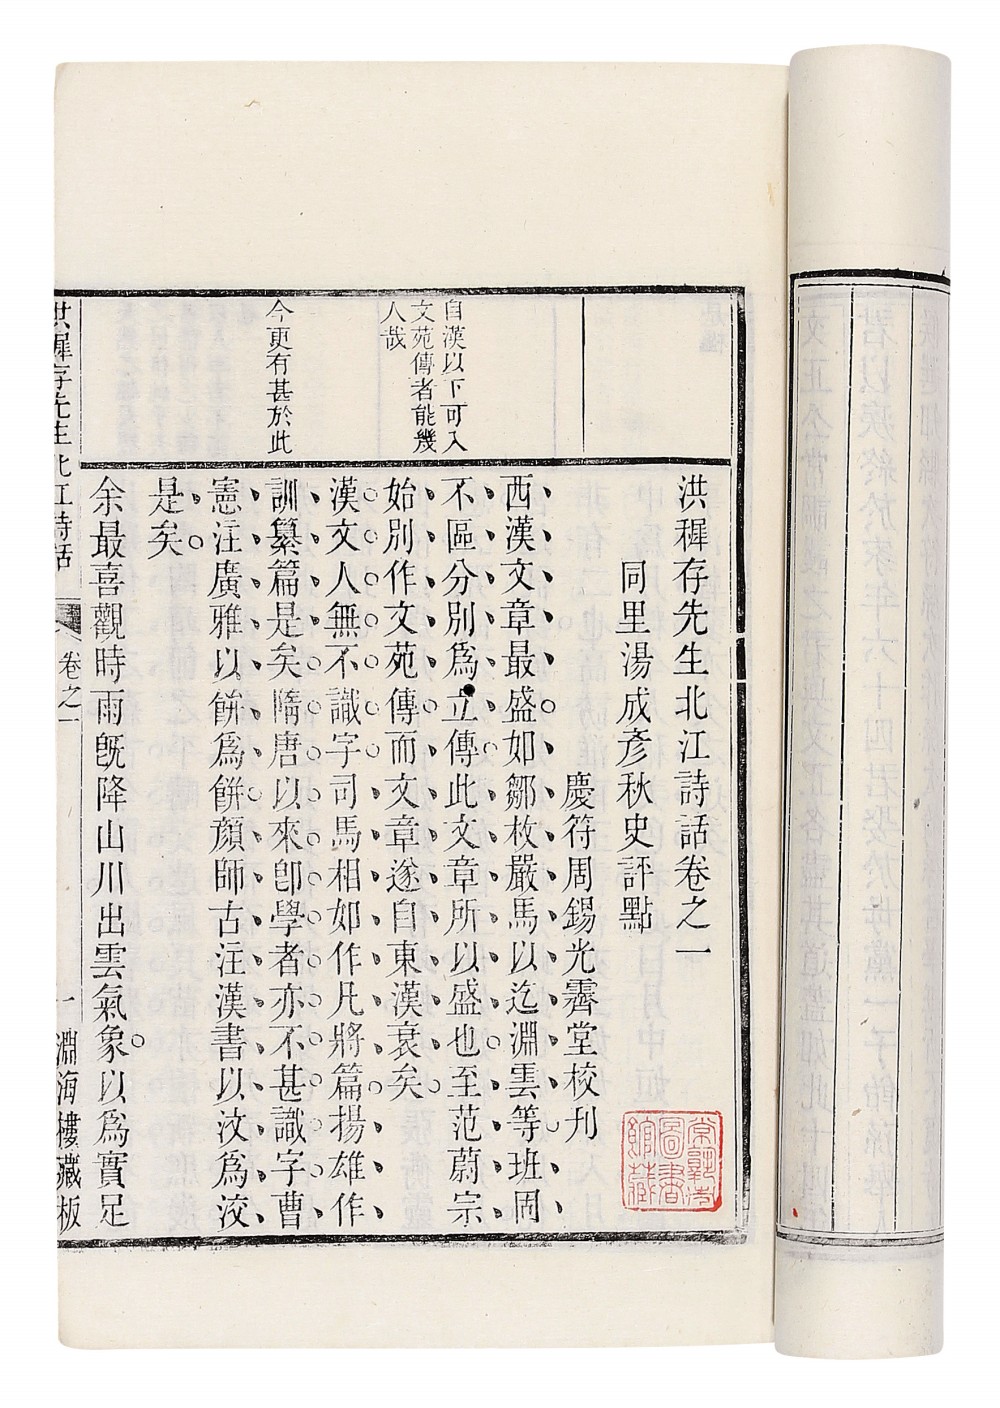 洪稺存先生北江詩話卷之一
同里湯成彥秋史評點
慶符周錫光霽堂校刊
西漢文章最盛如鄒枚嚴馬以迄淵雲等班固
不區分別爲立傳此文章所以盛也至范蔚宗
始別作文苑傳而文章遂自東漢衰矣
漢文人無不識字司馬相如作凡將篇揚雄作
訓纂篇是矣隋唐以來卽學者亦不甚識字曹
憲注廣雅以餠爲餅顔師古注漢書以汶爲洨
是矣
余最喜觀時雨旣降山川出雲氣象以爲實足
自漢以下可入
文苑傳者能幾
人哉
今更有甚於此
洪稺存先生北江詩話
卷之一
一
淵海樓藏板
圖書
館藏